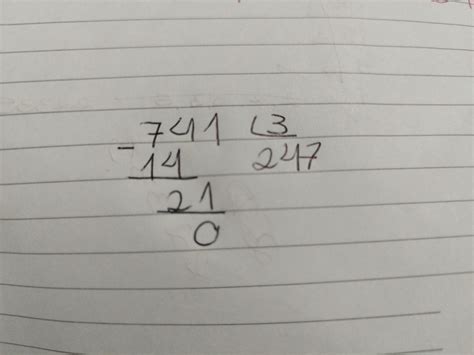 - 741 3
14 247
21
0